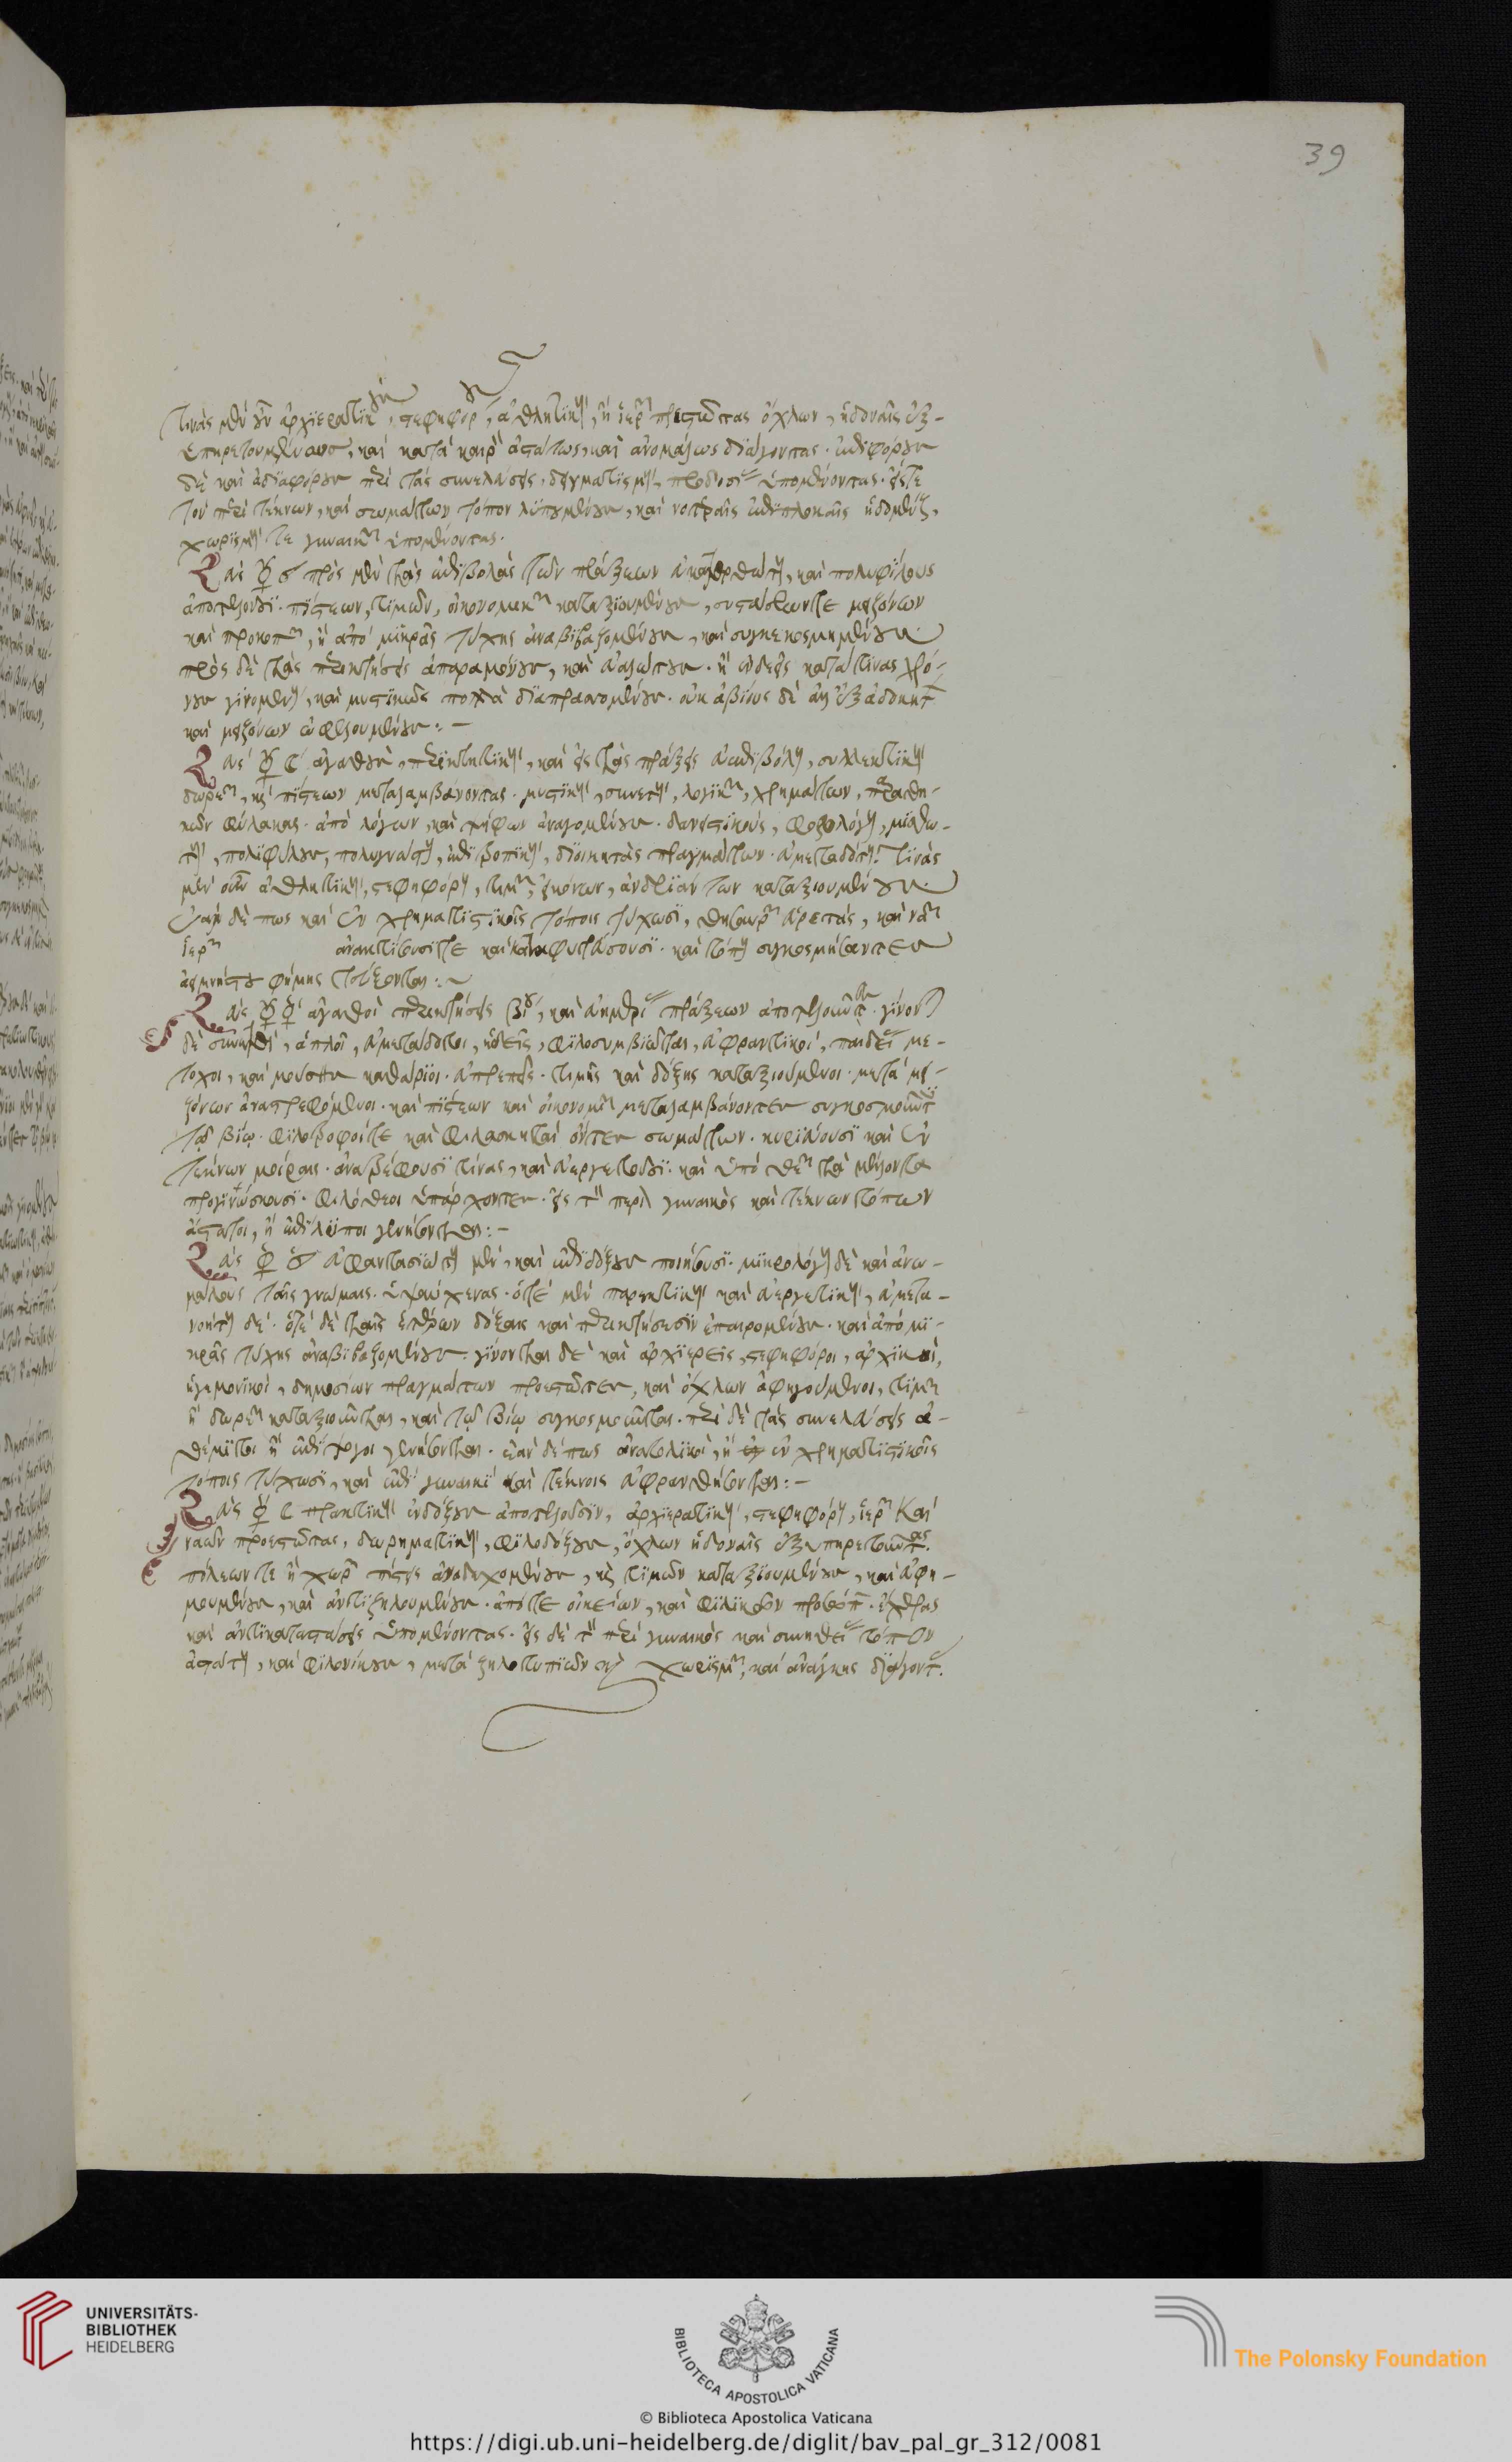 39
τινὰς μὲν οὖν ἀρχιερατικοὺς, στεφηφόρους, ἀθλητικοὺς, ἢ ἱερῶν προεστῶτας ὄχλων, ἡδοναῖς ἐξ-
υπηρετουμένους, καὶ κατὰ καιρὸν ἀστάτως καὶ ἀνομάλως διάγοντας. ἐπιψόγους
δὲ καὶ ἀδιαφόρους περὶ τὰς συνελεύσεις, δειγματισμοὺς, προδοσίας ὑπομένοντας. εἴς τε
τὸν περὶ τέκνων, καὶ σωμάτων τόπον λυπουμένους, καὶ νοτεραῖς ἐπιπλοκαῖς ἡδομένους,
χωρισμούς τε γυναικῶν ὑπομένοντας.
πρὸς μὲν τὰς ἐπιβολὰς τῶν πράξεων εὐκατορθώτους, καὶ πολυφίλους
ἀποτελοῦσι. πίστεων, τιμῶν, οἰκονομιῶν καταξιουμένους, συστάσεών τε μειζόνων
καὶ προκοπῶν, ἢ ἀπὸ μικρᾶς τύχης ἀναβιβαζομένους, καὶ συγκεκοσμημένους.
πρὸς δὲ τὰς περικτήσεις ἀπαραμόνους, καὶ εὐαλώτους. ἢ ἐνδεεῖς κατά τινας χρό-
νους γινομένους, καὶ μυστικῶς πολλὰ διαπρασσομένους. οὐκ ἀβίους δὲ
καὶ μειζόνων ὠφελουμένους:-
ἀγαθοὺς, περικτητικοὺς, καὶ εἰς τὰς πράξεις εὐεπιβόλους, συλλεκτικοὺς
δωρεῶν, καὶ πίστεων μεταλαμβάνοντας. μυστικοὺς, συνετοὺς, λογικῶν, χρημάτων, παραθη-
κῶν φύλακας. ἀπὸ λόγων, καὶ ψήφων ἀναγομένους. δανειστικοὺς, φορολόγους, μισθω-
τοὺς, πολυφίλους, πολυγνώστους, διοικητὰς πραγμάτων. εὐμεταδότους. τινὰς
μὲν οὖν ἀθλητικοὺς, στεφηφόρους, τιμῶν, εἰκόνων, ἀνδριάντων καταξιουμένους.
ἐὰν δέ πως καὶ ἐν χρηματιστικοῖς τόποις τύχωσι, θησαυρῶν εὑρετάς, καὶ ναῶν
ἱερῶν ἀνακτίσουσί τε καὶ καταφυτεύσουσι. καὶ τόπους συγκοσμήσαντες
ἀειμνήστου φήμης τεύξονται:~
ἀγαθοὶ περικτήσεις βίου, καὶ εὐημερίας πράξεων ἀποτελοῦντες. γίνονται
δὲ συνετοὶ, ἁπλοῖ, εὐμετάδοτοι, ἡδεῖς, φιλοσυμβίωται, εὐφραντικοί, παιδείας μέ-
τοχοι, καὶ μούσης καθάριοι. εὐπρεπεῖς. τιμῆς καὶ δόξης καταξιούμενοι. μετὰ μει-
ζόνων ἀναστρεφόμενοι. καὶ πίστεων καὶ οἰκονομιῶν μεταλαμβάνοντες συγκοσμοῦνται
τῷ βίῳ. φιλόσοφοί τε καὶ φιλασκηταὶ ὄντες σωμάτων. κυριεύουσι καὶ ἐν
τέκνων μοίραις. ἀνατρέφουσί τινας, καὶ εὐεργετοῦσι. καὶ ὑπὸ θεῶν τὰ μέλλοντα
προγινώσκουσι. φιλόθεοι ὑπάρχοντες. εἰς τοὺς περὶ γυναικὸς καὶ τέκνων τόπων
ἄστατοι, ἢ ἐπίλυποι γενήσονται:-
εὐφαντασιώτους μὲν, καὶ ἐπιδόξους ποιήσουσι. μικρολόγους δὲ καὶ ἀνω-
μάλους ταῖς γνώμαις. ὑψαύχενας. ὁτὲ μὲν παρεκτικοὺς καὶ εὐεργετικοὺς, εὐμετα-
νοήτους δέ. ὁτὲ δὲ ταῖς ἑτέρων δόξαις καὶ περικτήσεσιν ἐπαιρομένους. καὶ ἀπὸ μι-
κρᾶς τύχης ἀναβιβαζομένους. γίνονται δὲ καὶ ἀρχιερεῖς, στεφηφόροι, ἀρχικοὶ,
ἡγεμονικοὶ, δημοσίων πραγμάτων προεστῶτες, καὶ ὄχλων ἀφηγούμενοι, τιμῶν
ἢ δωρεῶν καταξιοῦνται, καὶ τῷ βίῳ συγκοσμοῦνται. περὶ δὲ τὰς συνελεύσεις ἀ-
θέμιτοι ἢ ἐπίψογοι γενήσονται. ἐὰν δέ πως ἀνατολικοὶ, ἢ ἐν χρηματιστικοῖς
τόποις τύχωσι, καὶ ἐπὶ γυναικὶ καὶ τέκνοις εὐφρανθήσονται:-
πρακτικοὺς ἐνδόξους ἀποτελοῦσιν, ἀρχιερατικοὺς, στεφηφόρους, ἱερῶν καὶ
ναῶν προεστῶτας, δωρηματικοὺς, φιλοδόξους, ὄχλων ἡδοναῖς ἐξυπηρετοῦντας.
πόλεών τε ἢ χωρῶν πίστεις ἀναδεχομένους, καὶ τιμῶν καταξιουμένους, καὶ εὐφη-
μουμένους, καὶ ἀντιζηλουμένους. ἀπό τε οἰκείων, καὶ φιλικῶν προσώπων. ἔχθρας
καὶ ἀντικαταστάσεις ὑπομένοντας. εἰς δὲ τοὺς περὶ γυναικὸς καὶ συνηθείας τόπον
ἀστάτους, καὶ φιλονίκους, μετὰ ζηλοτυπιῶν καὶ χωρισμῶν, καὶ ἀνάγκης διάγοντας.
UNIVERSITÄTS-
BIBLIOTHEK
HEIDELBERG
BIBLIOTECA APOSTOLICA VATICANA
The Polonsky Foundation
© Biblioteca Apostolica Vaticana
https://digi.ub.uni-heidelberg.de/diglit/bav_pal_gr_312/0081